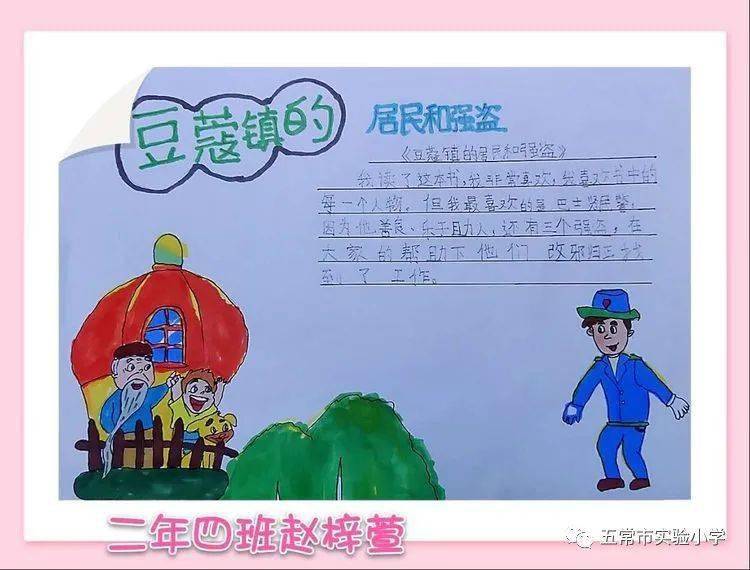 豆蔻镇的
居民和强盗
《豆蔻镇的居民和强盗》
我读了这本书,我非常喜欢,我喜欢书中的
每一个人物。但我最喜欢的是巴士贤民警,
因为他善良、乐于助人,还有三个强盗,在
大家的帮助下他们改邪归正找
到了工作。
二年四班赵梓萱
五常市实验小学